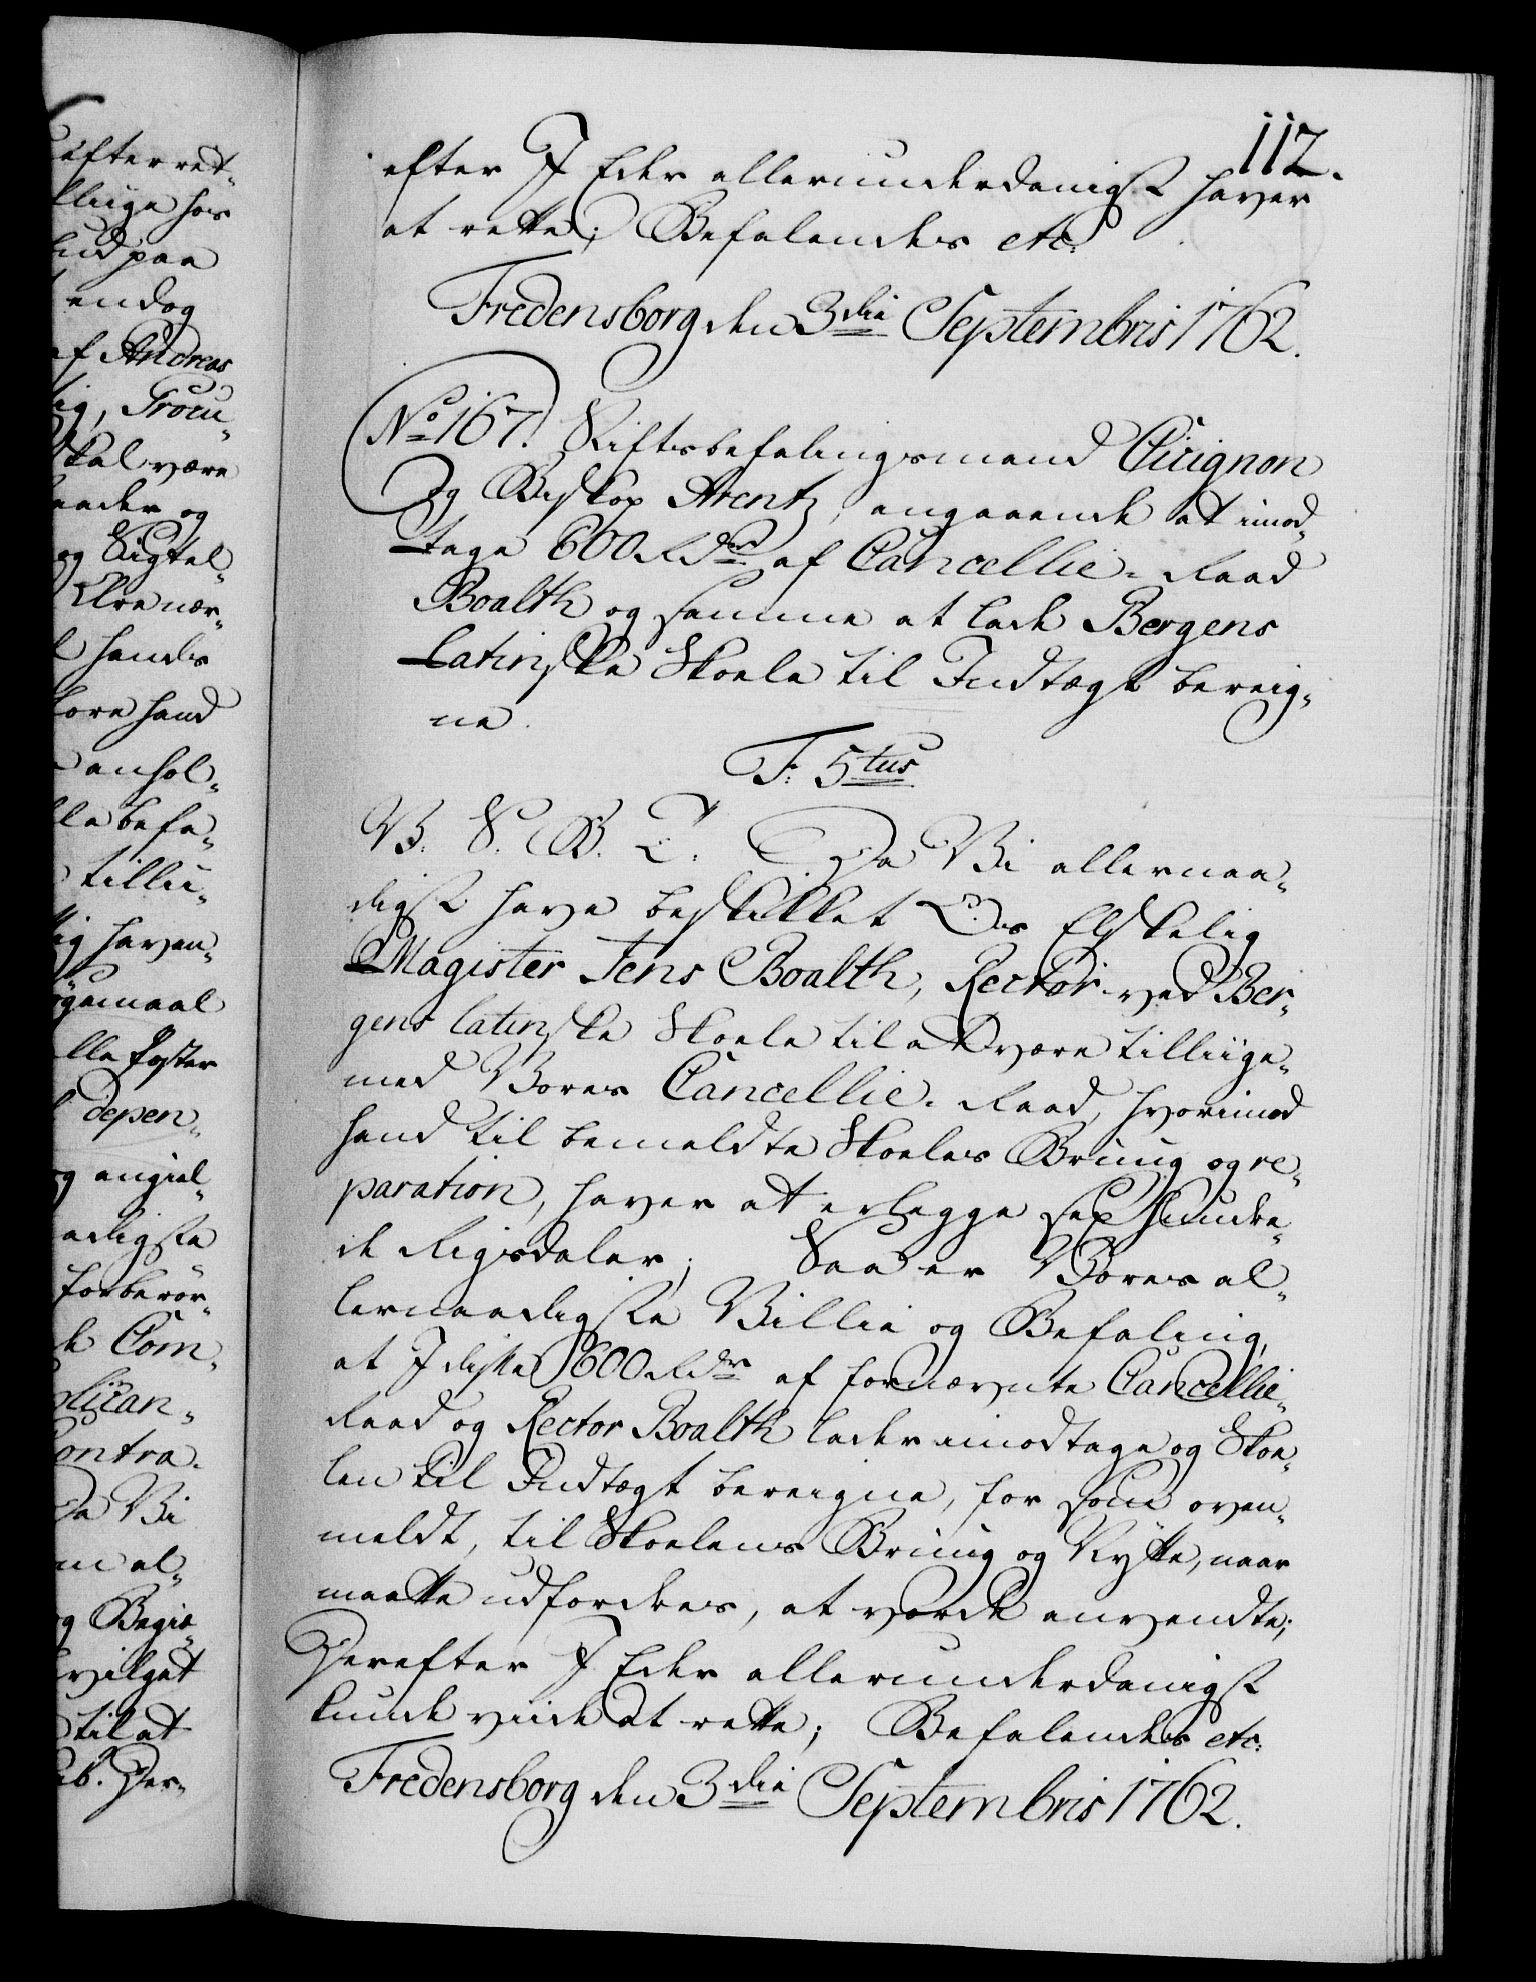 112.
efter I Eder allerunderdanigst haver
at rette; Befalendes etc:
Fredensborg den 3die Septembris 1762.
No 167. Stiftsbefalingsmand Cicignon
Og Biskop Arentz, angaaende at imod„
tage 600 Rdr af Cancellie-Raad
Boalth og samme at lade Bergens
Latinske Skoele til Indtægt bereig„
ne.
F: 5tus
V. S. B. T. Da Vi allernaa„
digst have beskikket Os Elskelig
Magister Jens Boalth, Rector ved Ber„
gens latinske Skoele til at være tilliige„
med Vores Cancellie-Raad, hvorimod
hand til bemeldte Skoeles Bruug og re„
paration, haver at erlegge sex hundre„
de Rigsdaler; Saa er Vores al„
lernaadigste Villie og Befaling,
at I diste 600 Rdr af fornævnte Cancellie„
Raad og Rector Boalth lader imodtage og Skoe„
len til Indtægt bereigne, for som oven„
meldt, til Skoelens Bruug og Nytte, naar
maatte udfordres, at vorde anvendte;
Derefter I Eder allerunderdanigst
kunde viide at rette; Befalendes etc:
Fredensborg den 3die Septembris 1762.
efterret„
lliige hos
ud paa
endog
af Andreas
ig, Procu„
skal være
og
og Sigtel„
l hands
hand
anhol„
lle befa„
tillii„
ig haven„
gemaal
lle Poster
depen„
og angiel„
adigste
forberør„
de Com„
plican„
Contra„
Da Vi
m al„
og Begiæ„
vilget
til at
Der„